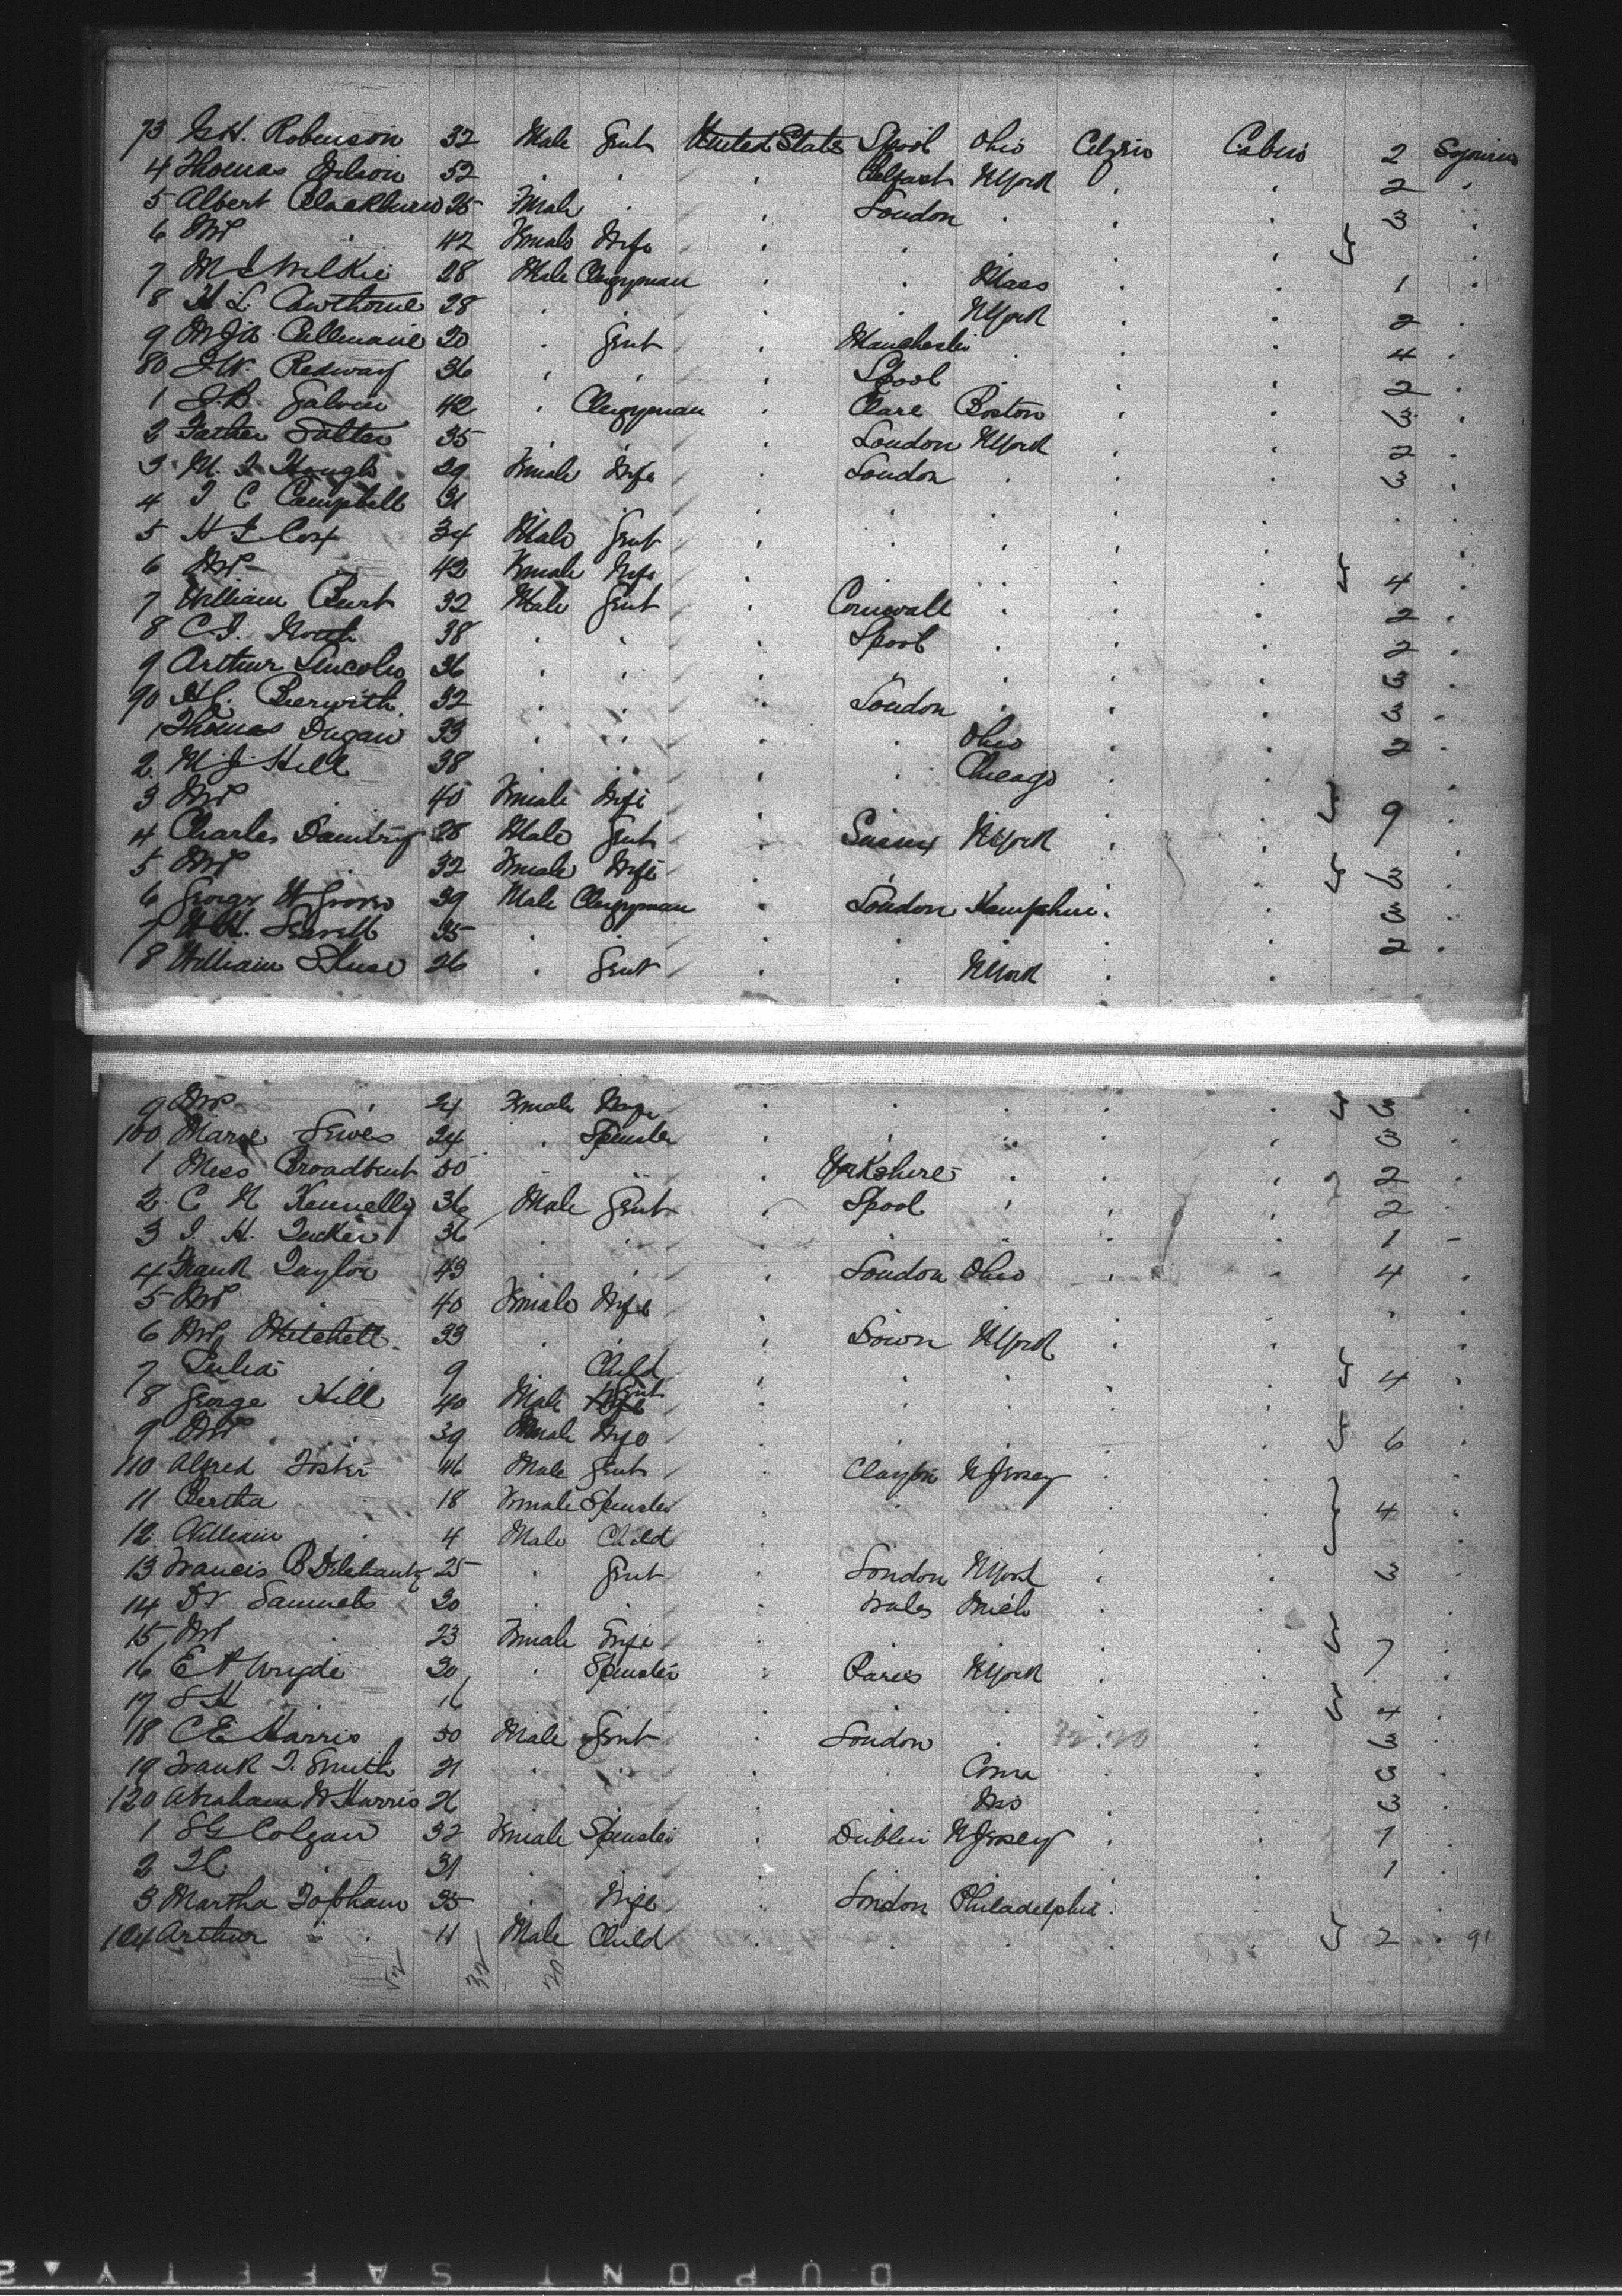 73 G.H. Robinson 32 Male Gent United States Lpool Ohio Citizen Cabin 2 Sojourn
4 Thomas Wilson 52 . . . Belfast N York . . 2 .
5 Albert Blackburn 35 Male . . London . . . 3 .
6 Mrs . 42 Female Wife . . . . . .
7 M J Wilkie 28 Male Clergyman . . Mass . . 1 .
8 H L. Cawthorne 28 . . . . N York . . 2 .
9 20 . Gent . Manchester . . . 4 .
80 J.W. Redway 36 . . . Lpool . . . 2 .
1 J.B. Galvin 42 . Clergyman . Clare Boston . . 3 .
2 Father Salter 35 . . . London N York . . 2 .
3 M. J. Hough 29 Female Wife . London . . . 3 .
4 J C Campbell 31 . . . . . . . . .
5 H J Cox 34 Male Gent . . . . . .
6 Mrs . 42 Female Wife . . . . . 4 .
7 William Burt 32 Male Gent . Cornwall . . . 2 .
8 C.J. North 38 . . . Lpool . . . 2 .
9 Arthur Lincoln 36 . . . . . . . 3 .
90 H. Berwith 32 . . . London . . . 3 .
1 Thomas Dugan 33 . . . . Ohio . . 2 .
2 M J Hill 38 . . . . Chicago . . .
3 Mrs . 40 Female Wife . . . . . 9 .
4 Charles Daintry 28 Male Gent . Sussex N York . . .
5 Mrs 32 Female Wife . . . . . 3 .
6 George W Grove 39 Male Clergyman . London Hampshire . . 3 .
7 W H. Sewell 35 . . . . . . . 2 .
8 William Shuse 26 . Gent . . N York . .
9 Mrs . 24 Female Wife . . . . . 3 .
100 Marie 24 . Spinster . . . . . 3 .
1 Miss Broadbent 50 . . . Yorkshire . . . 2 .
2 C N Kennelly 36 Male Gent . Lpool . . . 2 .
3 J. H. Tucker 36 . . . . . . . 1 .
4 Frank Taylor 43 . . . London Ohio . . 4 .
5 Mrs . 40 Female Wife . . . . . . .
6 Mrs Mitchell 33 . . . Down N York . . .
7 Julia . 9 . Child . . . . . 4 .
8 George Hill 40 Male Gent . . . . . .
9 Mrs . 39 Female Wife . . . . . 6 .
110 Alfred Foster 46 Male Gent . Clayton N Jersey . . .
11 Bertha . 18 Female Spinster . . . . . 4 .
12 William . 4 Male Child . . . . . .
13 Francis B Delehanty 25 . Gent . London N York . . 3 .
14 Dr Samuels 30 . . . Wales Mich . . .
15 Mrs . 23 Female Wife . . . . . 7 .
16 E A 30 . Spinster . Paris N York . . .
17 S H . 16 . . . . . . . 4 .
18 C E Harris 50 Male Gent . London . . . 3 .
19 Frank J. Smith 21 . . . . Conn . . 3 .
120 Abraham W Harris 26 . . . . Wis . . 3 .
1 S G Colgan 32 Female Spinster . Dublin N Jersey . . 1 .
2 . 31 . . . . . . . 1 .
3 Martha Topham 35 . Wife . London Philadelphia . . .
124 Arthur . 11 Male Child . . . . . 2 . 91
52 32 20
DUPONT SAFETY